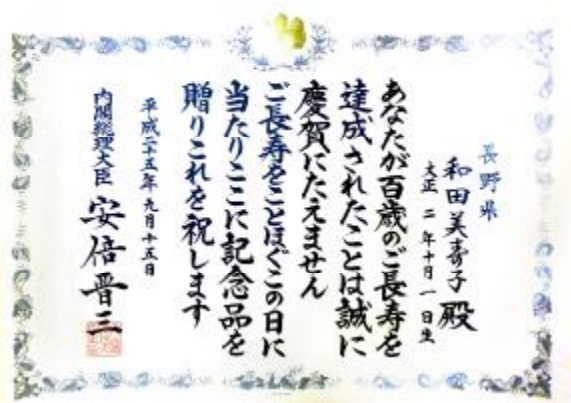 長野県
和田美壽子殿
大正 二 年十月 一 日生
あなたが百歳のご長寿を
達成されたことは誠に
慶賀にたえません
ご長寿をことほぐこの日に
当たりここに記念品を
贈りこれを祝します
平成二十五年九月十五日
内閣総理大臣 安倍晋三